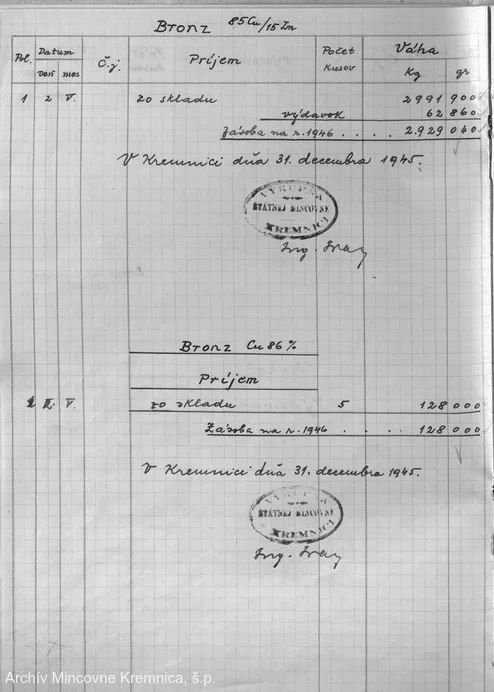 Bronz 85Cu/15Zn
Pol. Datum Č.j. Príjem Počet Kusov Váha
Deň mes Kg gr
1 2 V. zo skladu 2991 900
výdavok 62 860
Zásoba na r. 1946 . . . . 2.929 040
V Kremnici dňa 31. decembra 1945.
VÝRUBŇA
ŠTÁTNEJ MINCOVNE
KREMNICI
Ing.
Bronz Cu 86%
Príjem
V. zo skladu 5 128 000
Zásoba na r. 1946 . . . 128 000
V Kremnici dňa 31. decembra 1945.
ŠTÁTNEJ MINCOVNE
KREMNICI
Ing.
Archív Mincovne Kremnica, š.p.